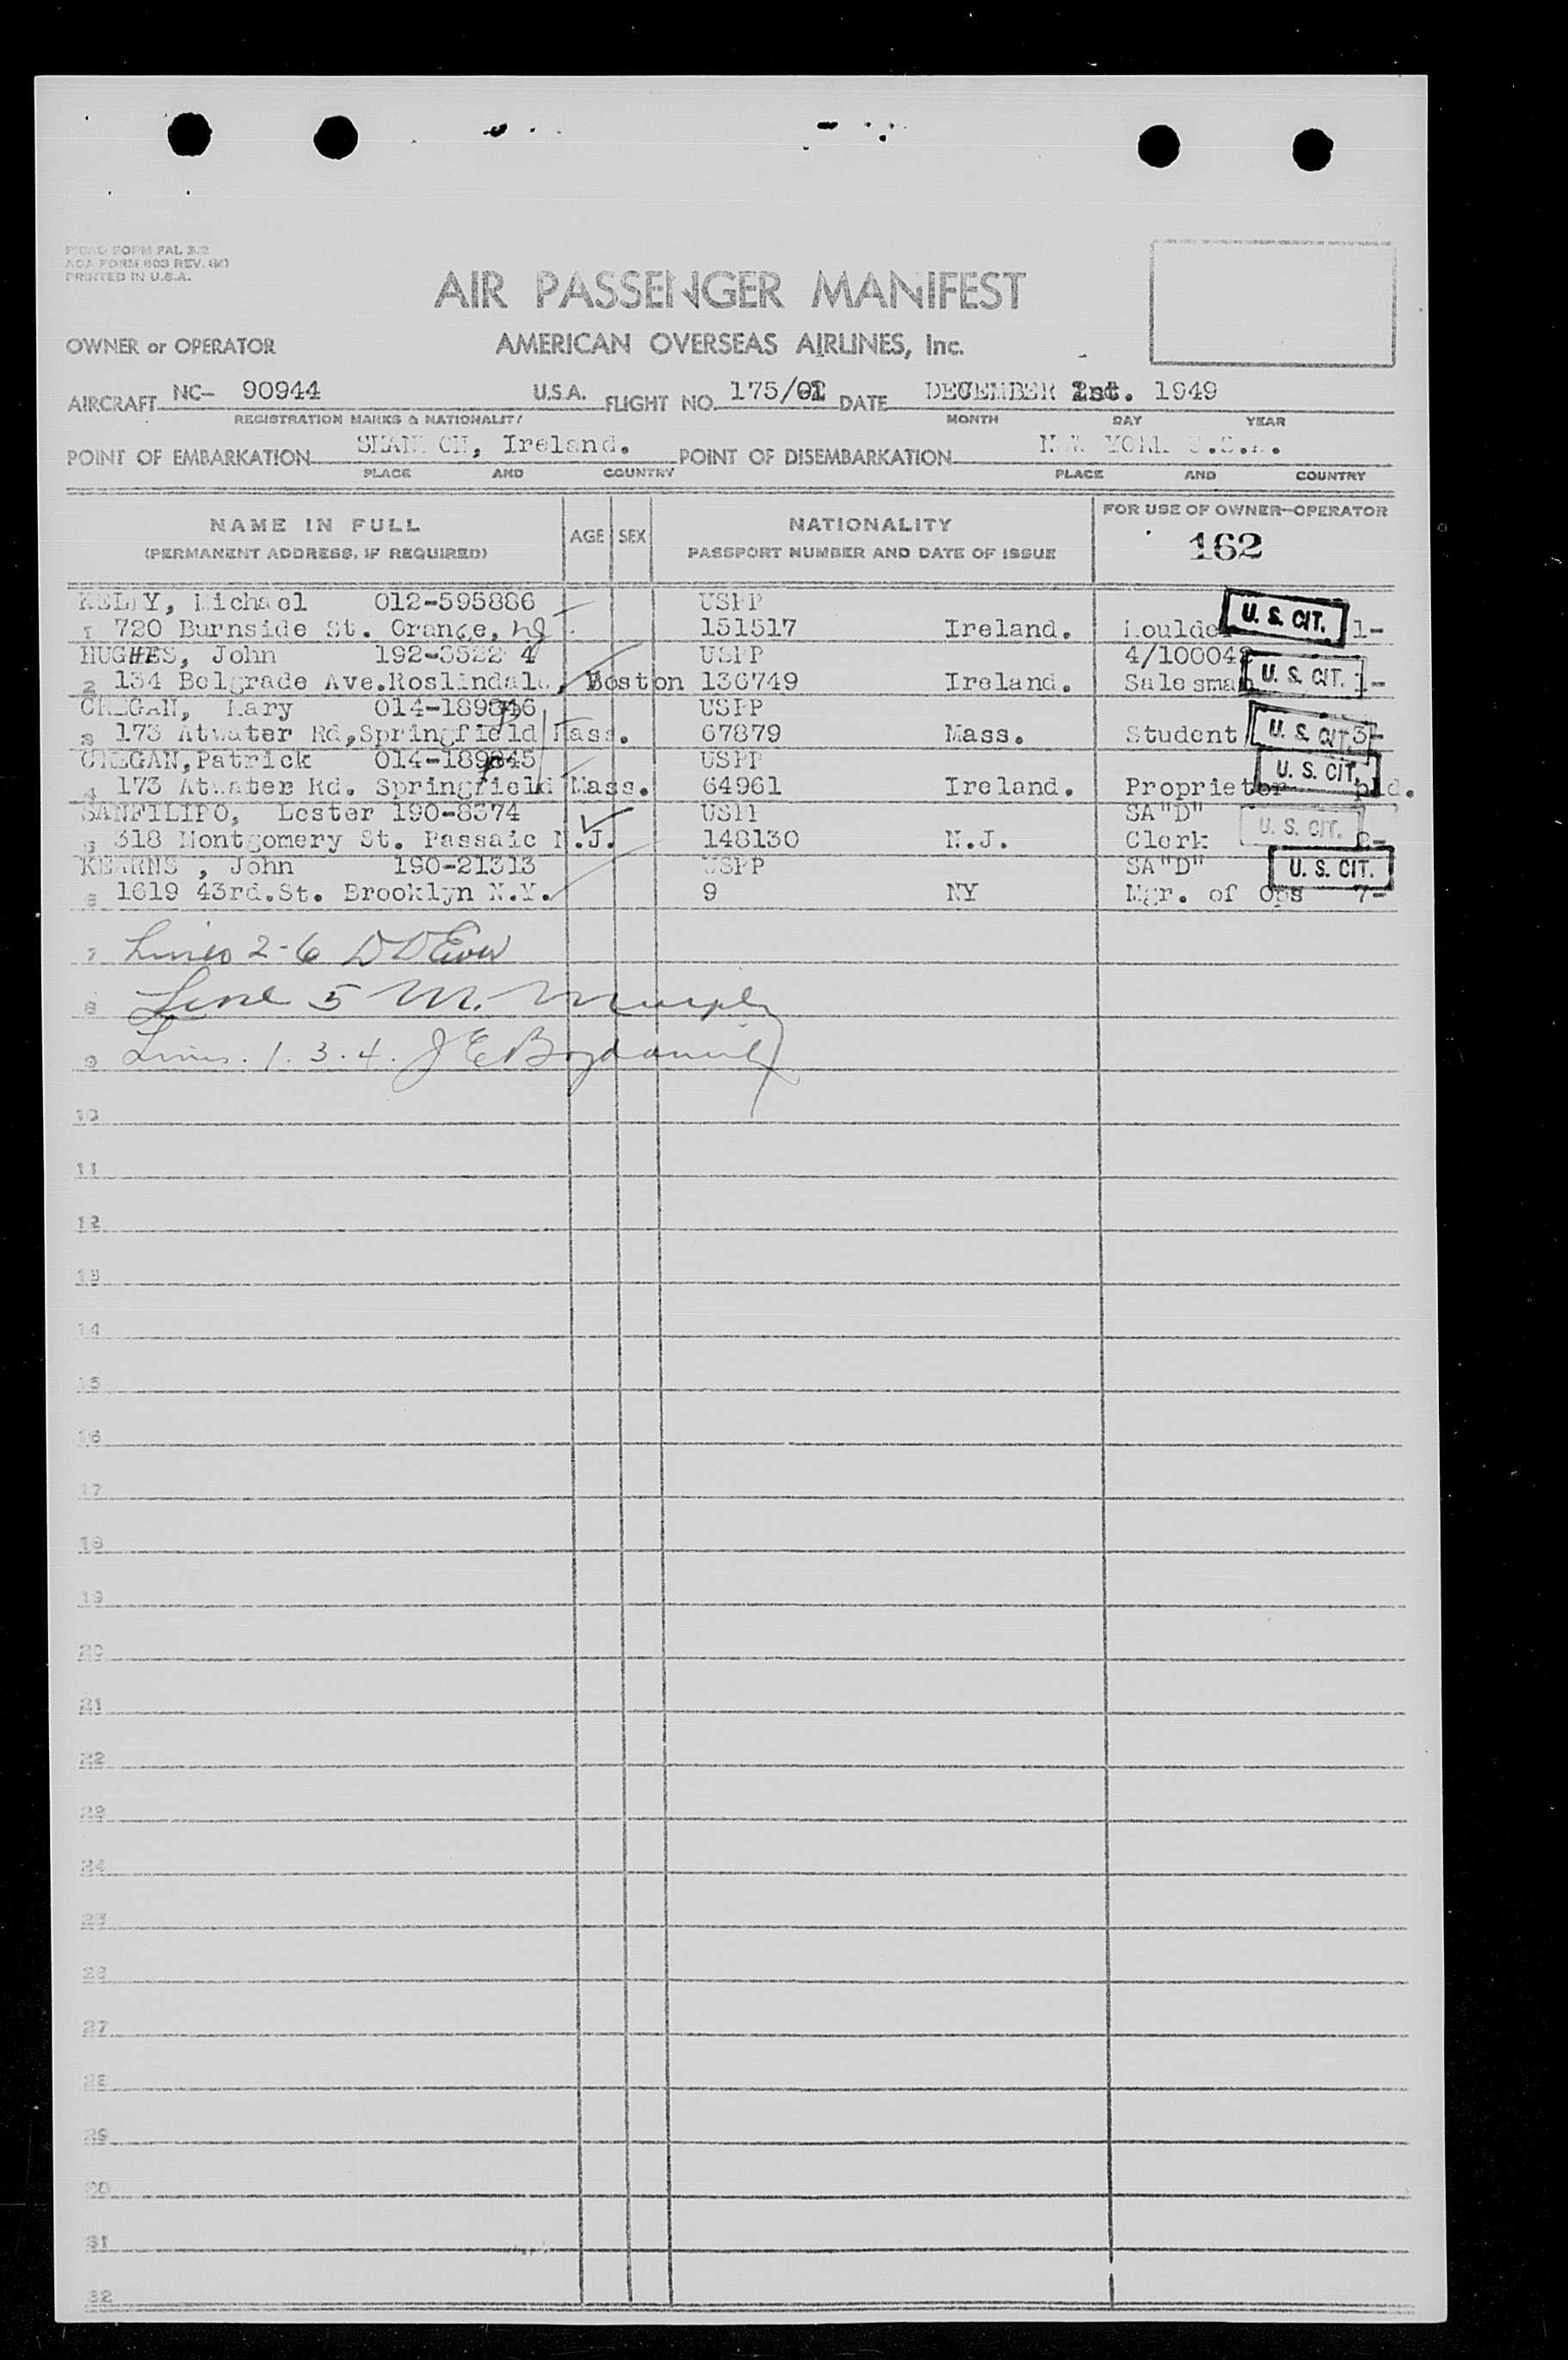 PICAO FORM FAL 3.2
AOA FORM 803 REV. (M)
PRINTED IN U.S.A.
AIR PASSENGER MANIFEST
OWNER or OPERATOR AMERICAN OVERSEAS AIRLINES, Inc.
AIRCRAFT NC- 90944 U.S.A. FLIGHT NO. 175/ DATE DECEMBER 1949
REGISTRATION MARKS & NATIONALITY MONTH DAY YEAR
POINT OF EMBARKATION SHANNON, Ireland. POINT OF DISEMBARKATION NEW YORK U.S.A.
PLACE AND COUNTRY PLACE AND COUNTRY
NAME IN FULL AGE SEX NATIONALITY FOR USE OF OWNER-OPERATOR
(PERMANENT ADDRESS, IF REQUIRED) PASSPORT NUMBER AND DATE OF ISSUE 162
KELLY, Michael 012-595886 USPP
1 720 Burnside St. Orange, NJ 151517 Ireland. Moulder U. S. CIT. 1-
HUGHES, John 192-3522 4 USPP 4/100042
2 134 Belgrade Ave.Roslindale, Boston 136749 Ireland. Salesman U. S. CIT. 1-
CREGAN, Mary USPP
3 173 Atwater Rd,Springfield Mass. 67879 Mass. Student U. S. CIT. 3-
CREGAN,Patrick USPP
4 173 Atwater Rd. Springfield Mass. 64961 Ireland. Proprietor U. S. CIT.
SANFILIPO, Lester 190-8374 USPP SA"D"
5 318 Montgomery St. Passaic N.J. 148130 N.J. Clerk U. S. CIT.
KEARNS , John 190-21313 USPP SA"D"
6 1619 43rd.St. Brooklyn N.Y. 9 NY Mgr. of Ops U. S. CIT. 7-
7 Lines 2-6
8 Line 5 M. Murphy
9 Lines. 1. 3. 4.
10
11
12
13
14
15
16
17
18
19
20
21
22
23
24
25
26
27
28
29
30
31
32